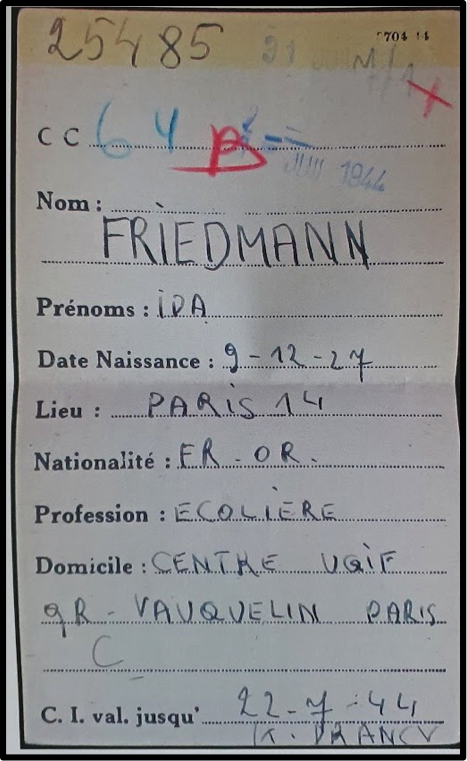 25485
C C 64 B
JUIL 1944
Nom :
FRIEDMANN
Prénoms : IDA
Date Naissance : 9-12-27
Lieu : PARIS 14
Nationalité : FR - OR.
Profession : ECOLIÈRE
Domicile : CENTRE UGIF
9R - VAUQUELIN PARIS
C
C. I. val. jusqu' 22-7-44
DRANCY